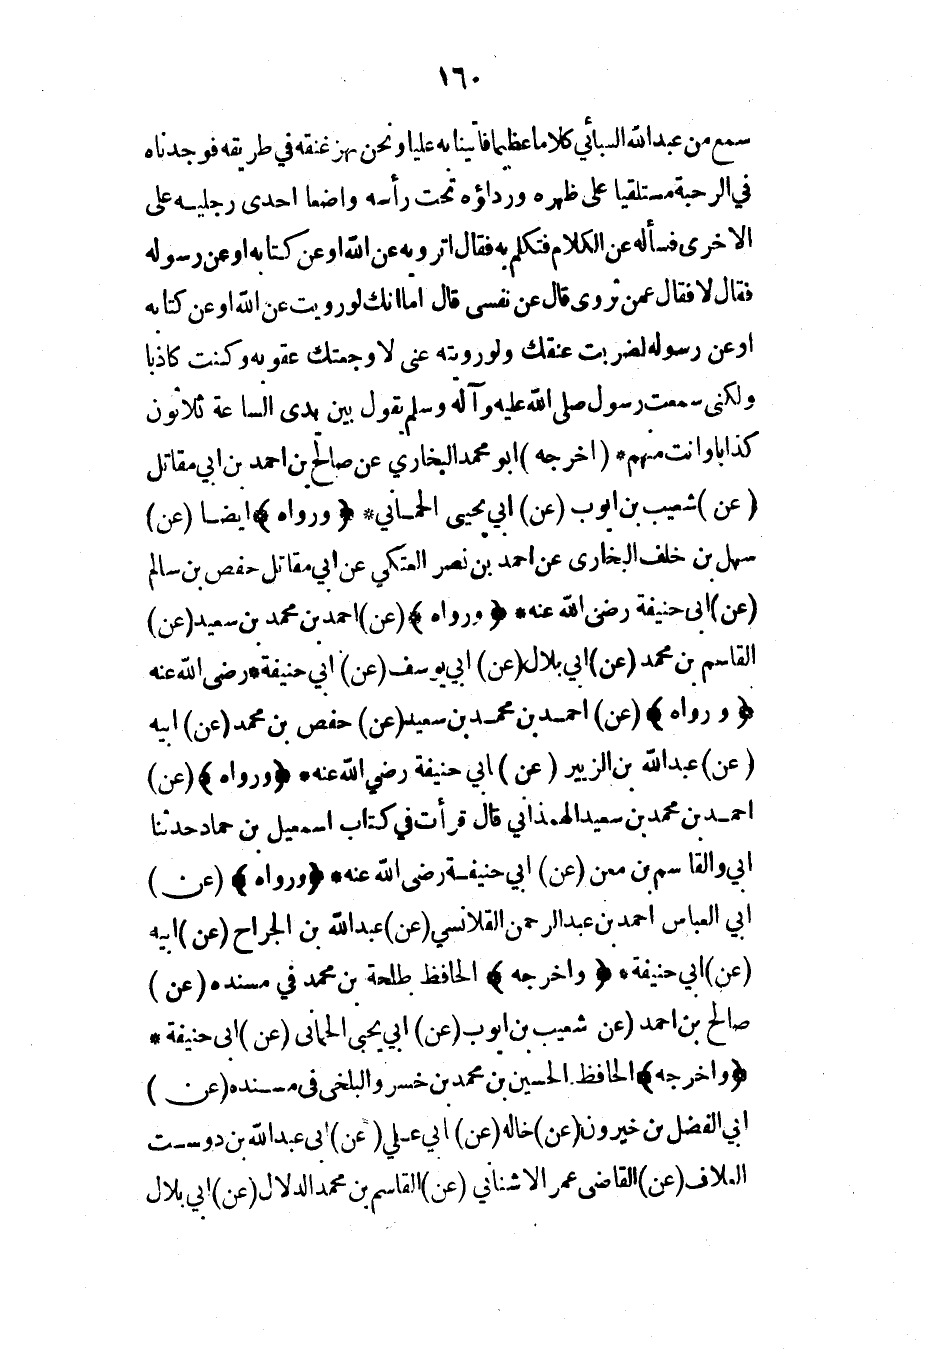 ١٦٠
سمع من عبدالله السبائي كلاما عظيما فاتينا به عليا ونحن نهز عنقه في طريقه فوجدناه
في الرحبة مستلقيا على ظهره ورداؤه تحت رأسه واضعا احدى رجليه على
الاخرى فسأله عن الكلام فتكلم به فقال اترويه عن الله او عن كتابه او عن رسوله
فقال لا فقال عمن تروى قال عن نفسى قال اما انك لو رويت عن الله او عن كتابه
او عن رسوله لضربت عنقك ولو رويته عنى لاوجعتك عقوبه وكنت كاذبا
ولكنى سمعت رسول صلى الله عليه وآله وسلم يقول بين يدى الساعة ثلاثون
كذابا وانت منهم * ( اخرجه ) ابو محمد البخاري عن صالح بن احمد بن ابي مقاتل
( عن ) شعيب بن ايوب (عن) ابي يحيى الحماني * ﴿ ورواه ﴾ ايضا (عن)
سهل بن خلف البخارى عن احمد بن نصر العتكي عن ابي مقاتل حفص بن سالم
(عن) ابى حنيفة رضى الله عنه * ﴿ ورواه ﴾ (عن) احمد بن محمد بن سعيد (عن)
القاسم بن محمد (عن) ابي بلال (عن) ابي يوسف (عن) ابي حنيفة * رضى الله عنه
﴿ ورواه ﴾ (عن) احمد بن محمد بن سعيد (عن) حفص بن محمد (عن) ابيه
( عن ) عبدالله بن الزبير ( عن ) ابي حنيفة رضي الله عنه * ﴿ ورواه ﴾ (عن)
احمد بن محمد بن سعيد الهمذاني قال قرأت في كتاب اسمعيل بن حماد حدثنا
ابي والقاسم بن معن (عن) ابي حنيفة رضى الله عنه * ﴿ ورواه ﴾ (عن)
ابي العباس احمد بن عبدالرحمن القلانسي (عن) عبدالله بن الجراح (عن) ابيه
(عن) ابي حنيفة * ﴿ واخرجه ﴾ الحافظ طلحة بن محمد في مسنده (عن)
صالح بن احمد (عن شعيب بن ايوب (عن) ابي يحيى الحمانى (عن) ابى حنيفة *
﴿ واخرجه ﴾ الحافظ الحسين بن محمد بن خسرو البلخى فى مسنده (عن)
ابي الفضل بن خيرون (عن) خاله (عن) ابي علي (عن) ابى عبدالله بن دوست
العلاف (عن) القاضى عمر الاشناني (عن) القاسم بن محمد الدلال (عن) ابي بلال